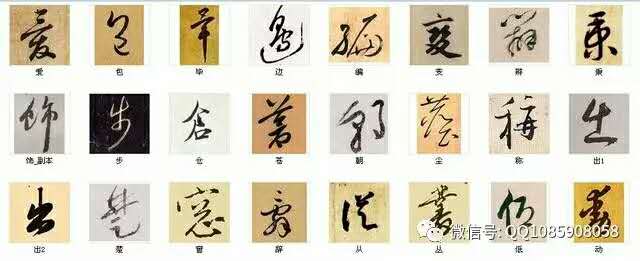 爱 包 毕 边 编 变 秉
饰_副本 步 仓 苍 朝 尘 称 出1
出2 楚 窗 辞 从 丛 低 动
微信号: QQ1085908058